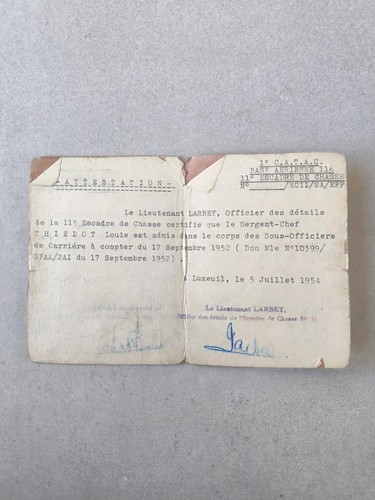 1° C.A.T.A.C.
BASE AERIENNE 116
11° ESCADRE DE CHASSE
N° /EC11/SA/EFF
ATTESTATION
Le Lieutenant LARBEY, Officier des détails
de la 11° Escadre de Chasse certifie que le Sergent-Chef
THIEDOT Louis est admis dans le corps des Sous-Officiers
de Carrière à compter du 17 Septembre 1952 ( Don Mle N°1D399/
SPAA/2AI du 17 Septembre 1952)
Luxeuil, le 5 Juillet 1954
Le Lieutenant LARBEY,
Officier des détails de l'Escadre de Chasse N°